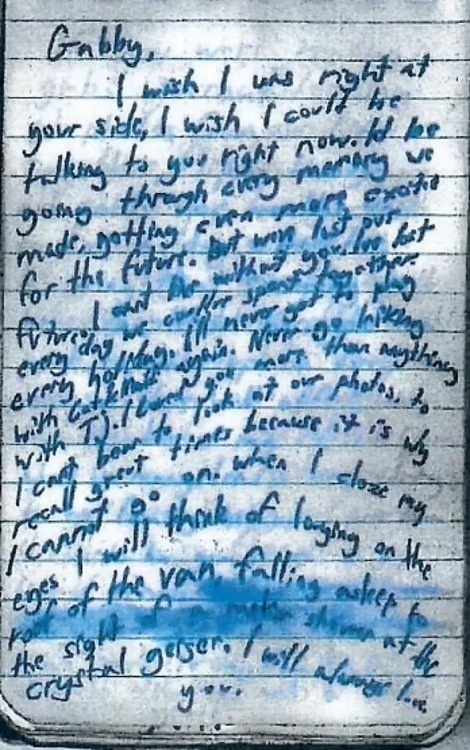 Gabby,
I wish I was right at
your side, I wish I could be
talking to you right now. Id be
going through every memory we
made, getting even more excited
for the future. But weve lost our
future. I cant live without you. Ive lost
every day we couldve spent together.
every holiday. Ill never get to play
with again. Never go hiking
with TJ. I loved you more than anything
I cant bear to look at our photos, to
recall great times because it is why
I cannot go on. when I close my
eyes I will think of laughing on the
roof of the van, falling asleep to
the sight of a meteor shower at the
crystal geyser. I will always love
you.